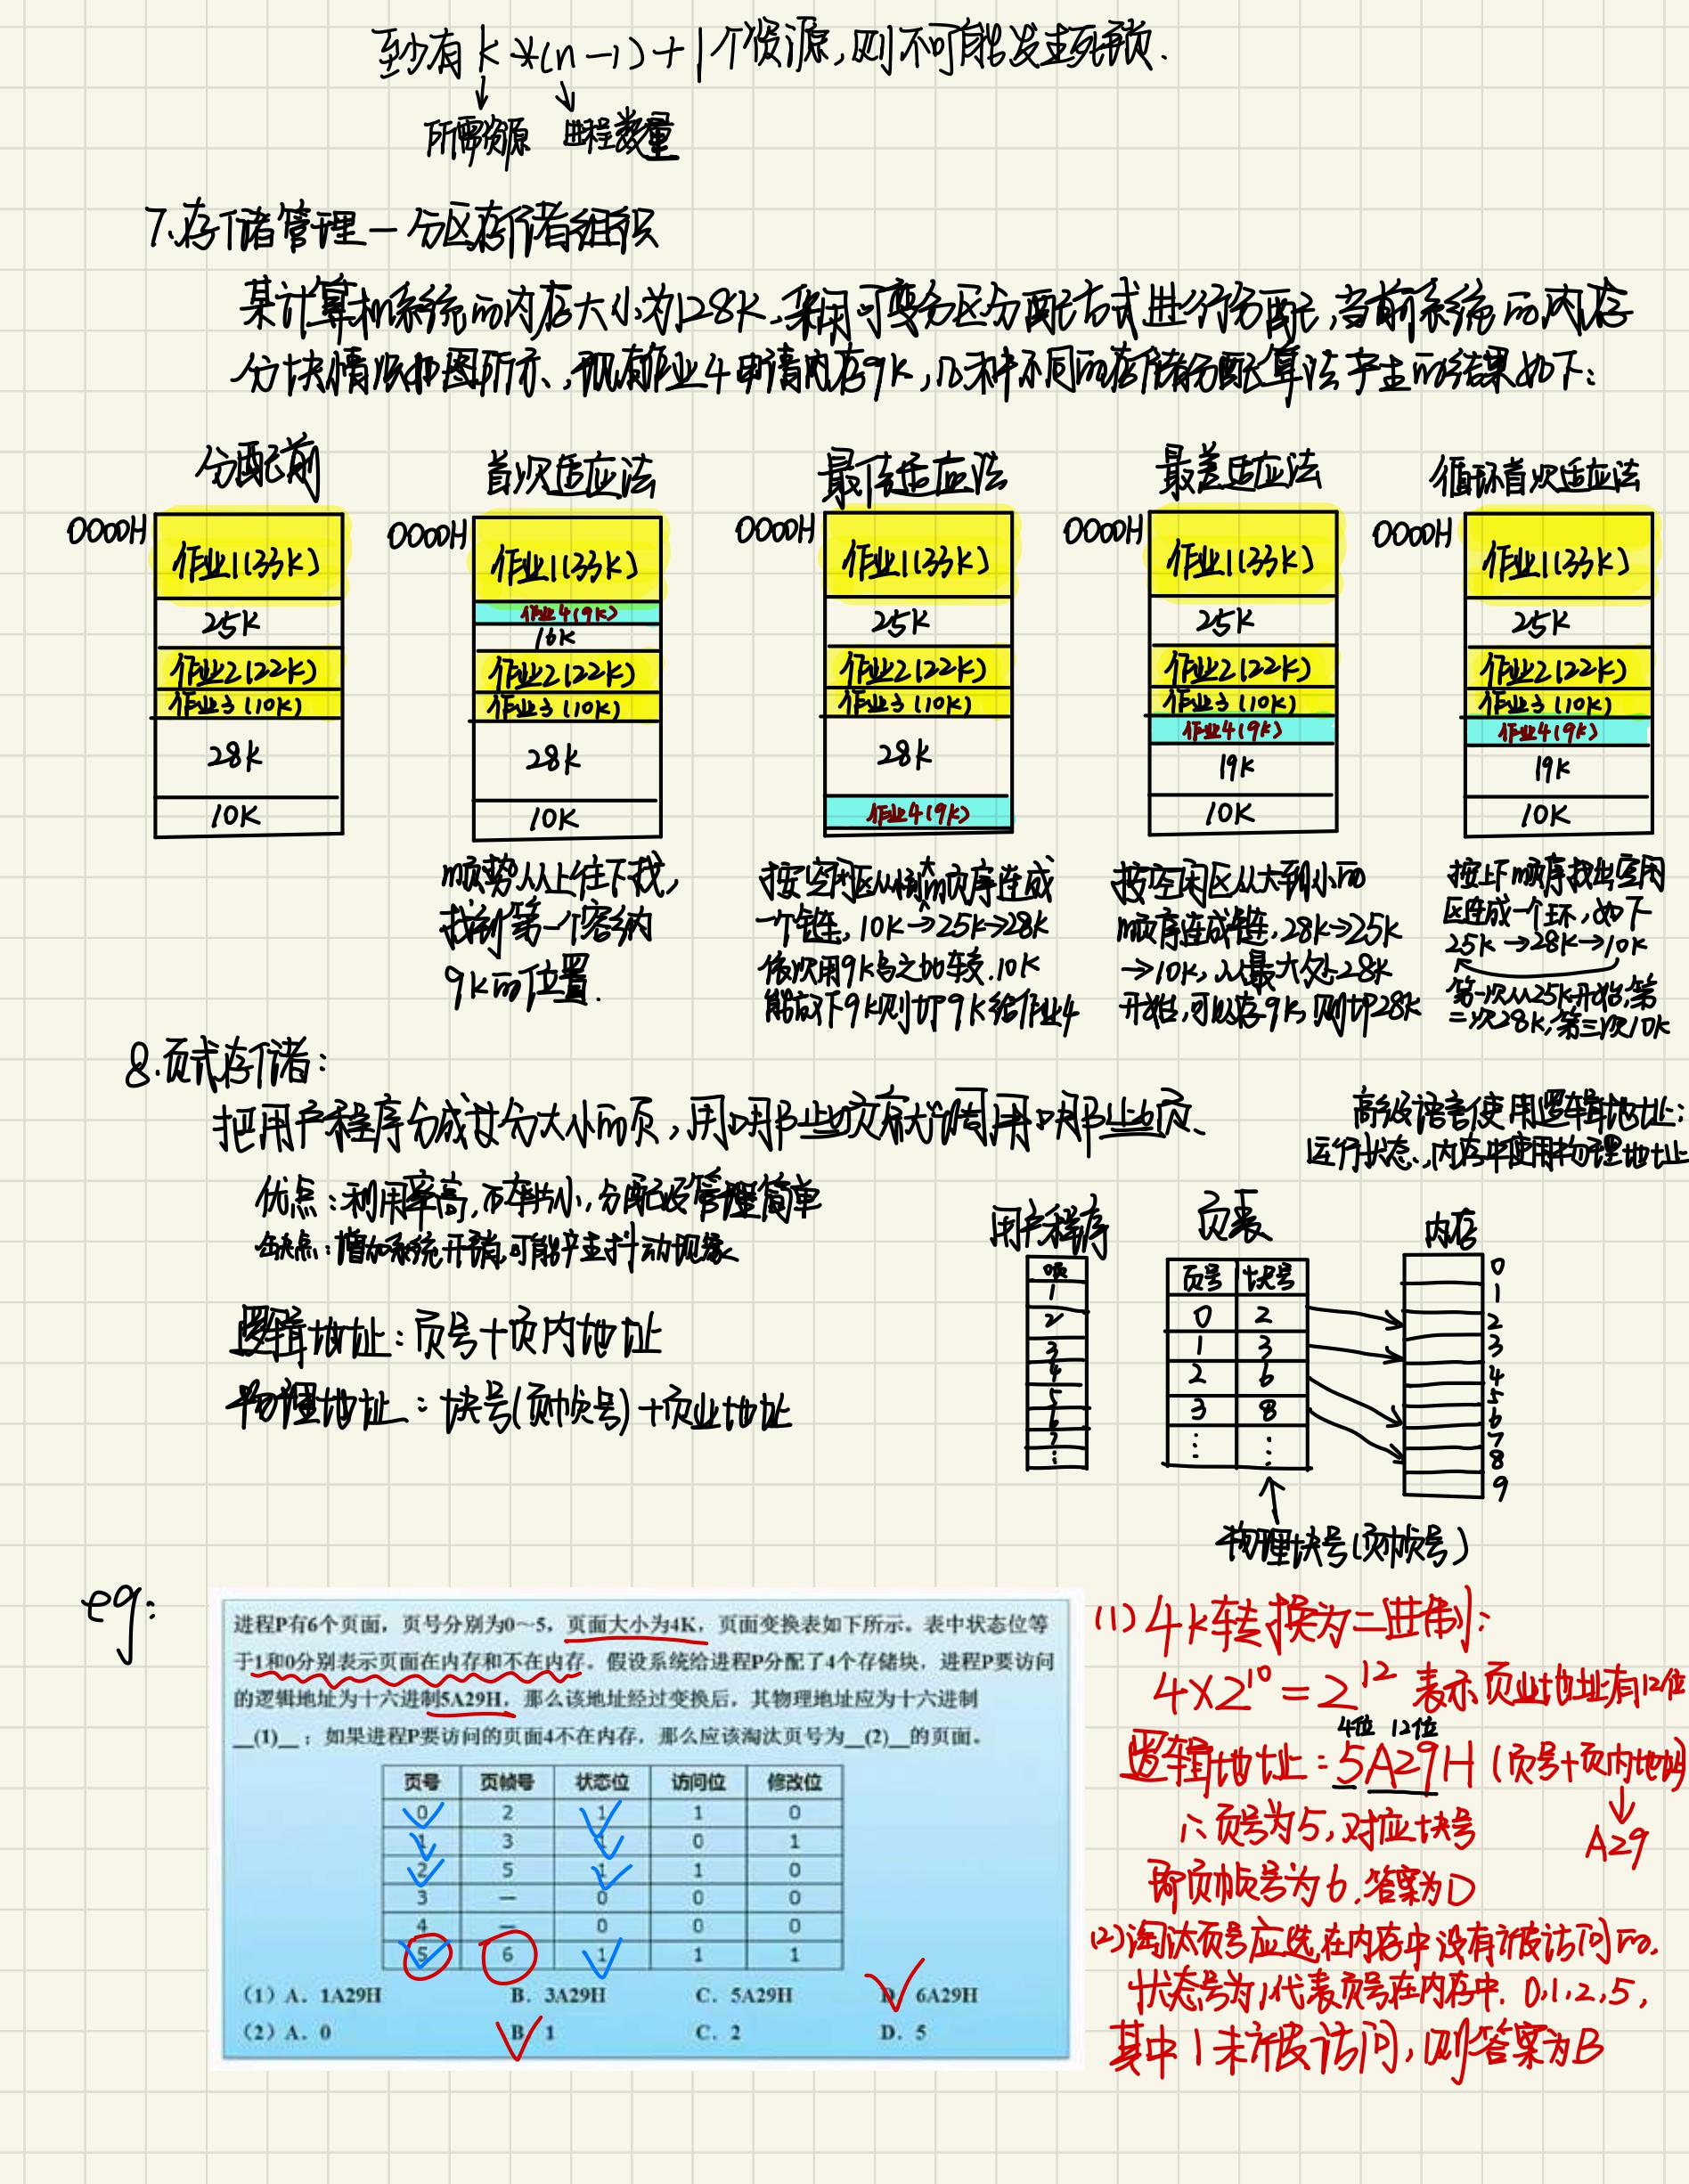 至少有 k*(n-1)+1个资源,则不可能发生死锁.
所需资源 进程数量
7.存储管理—分区存储组织
某计算机系统的内存大小为128K,采用可变分区分配方式进行分配,当前系统的内存
分块情况如图所示,现有作业4申请内存9K,几种不同的存储分配算法产生的结果如下:
分配前
0000H
作业1(33K)
25K
作业2(22K)
作业3(10K)
28K
10K
首次适应法
0000H
作业1(33K)
作业4(9K)
16K
作业2(22K)
作业3(10K)
28K
10K
顺势从上往下找,
找到第一个容纳
9K的位置.
最佳适应法
0000H
作业1(33K)
25K
作业2(22K)
作业3(10K)
28K
作业4(9K)
按空闲区从小到大的顺序连成
一个链,10K→25K→28K
依次用9K与之比较.10K
能放下9K则切9K给作业4
最差适应法
0000H
作业1(33K)
25K
作业2(22K)
作业3(10K)
作业4(9K)
19K
10K
按空闲区从大到小的
顺序连成链,28K→25K
→10K,从最大处28K
开始,可以存9K,则切28K
循环首次适应法
0000H
作业1(33K)
25K
作业2(22K)
作业3(10K)
作业4(9K)
19K
10K
按上下顺序找出空闲
区连成一个环,如下
25K→28K→10K
第一次从25K开始,第
二次28K,第三次10K
8.页式存储:
把用户程序分成等分大小的页,用哪些页就调用哪些页、
高级语言使用逻辑地址;
运行状态、内存中使用物理地址
优点:利用率高,碎片小,分配及管理简单
缺点:增加系统开销,可能产生抖动现象
逻辑地址:页号+页内地址
物理地址:块号(页帧号)+页内地址
用户程序
1
2
3
4
5
6
7
⋮
页表
页号 块号
0 2
1 3
2 6
3 8
⋮ ⋮
物理块号(页帧号)
内存
0
1
2
3
4
5
6
7
8
9
eg:
进程P有6个页面,页号分别为0～5,页面大小为4K,页面变换表如下所示。表中状态位等
于1和0分别表示页面在内存和不在内存。假设系统给进程P分配了4个存储块,进程P要访问
的逻辑地址为十六进制5A29H,那么该地址经过变换后,其物理地址应为十六进制
__(1)__;如果进程P要访问的页面4不在内存,那么应该淘汰页号为__(2)__的页面。
页号 页帧号 状态位 访问位 修改位
0 2 1 1 0
1 3 1 0 1
2 5 1 1 0
3 — 0 0 0
4 — 0 0 0
5 6 1 1 1
(1)A. 1A29H B. 3A29H C. 5A29H D. 6A29H
(2)A. 0 B. 1 C. 2 D. 5
(1) 4K转换为二进制:
4×2^10=2^12 表示页内地址有12位
4位 12位
逻辑地址:5A29H(页号+页内地址)
∴页号为5,对应块号
A29
即页帧号为6.答案为D
(2)淘汰页号应选在内存中没有被访问的.
状态号为1代表页号在内存中.0,1,2,5,
其中1未被访问,则答案为B